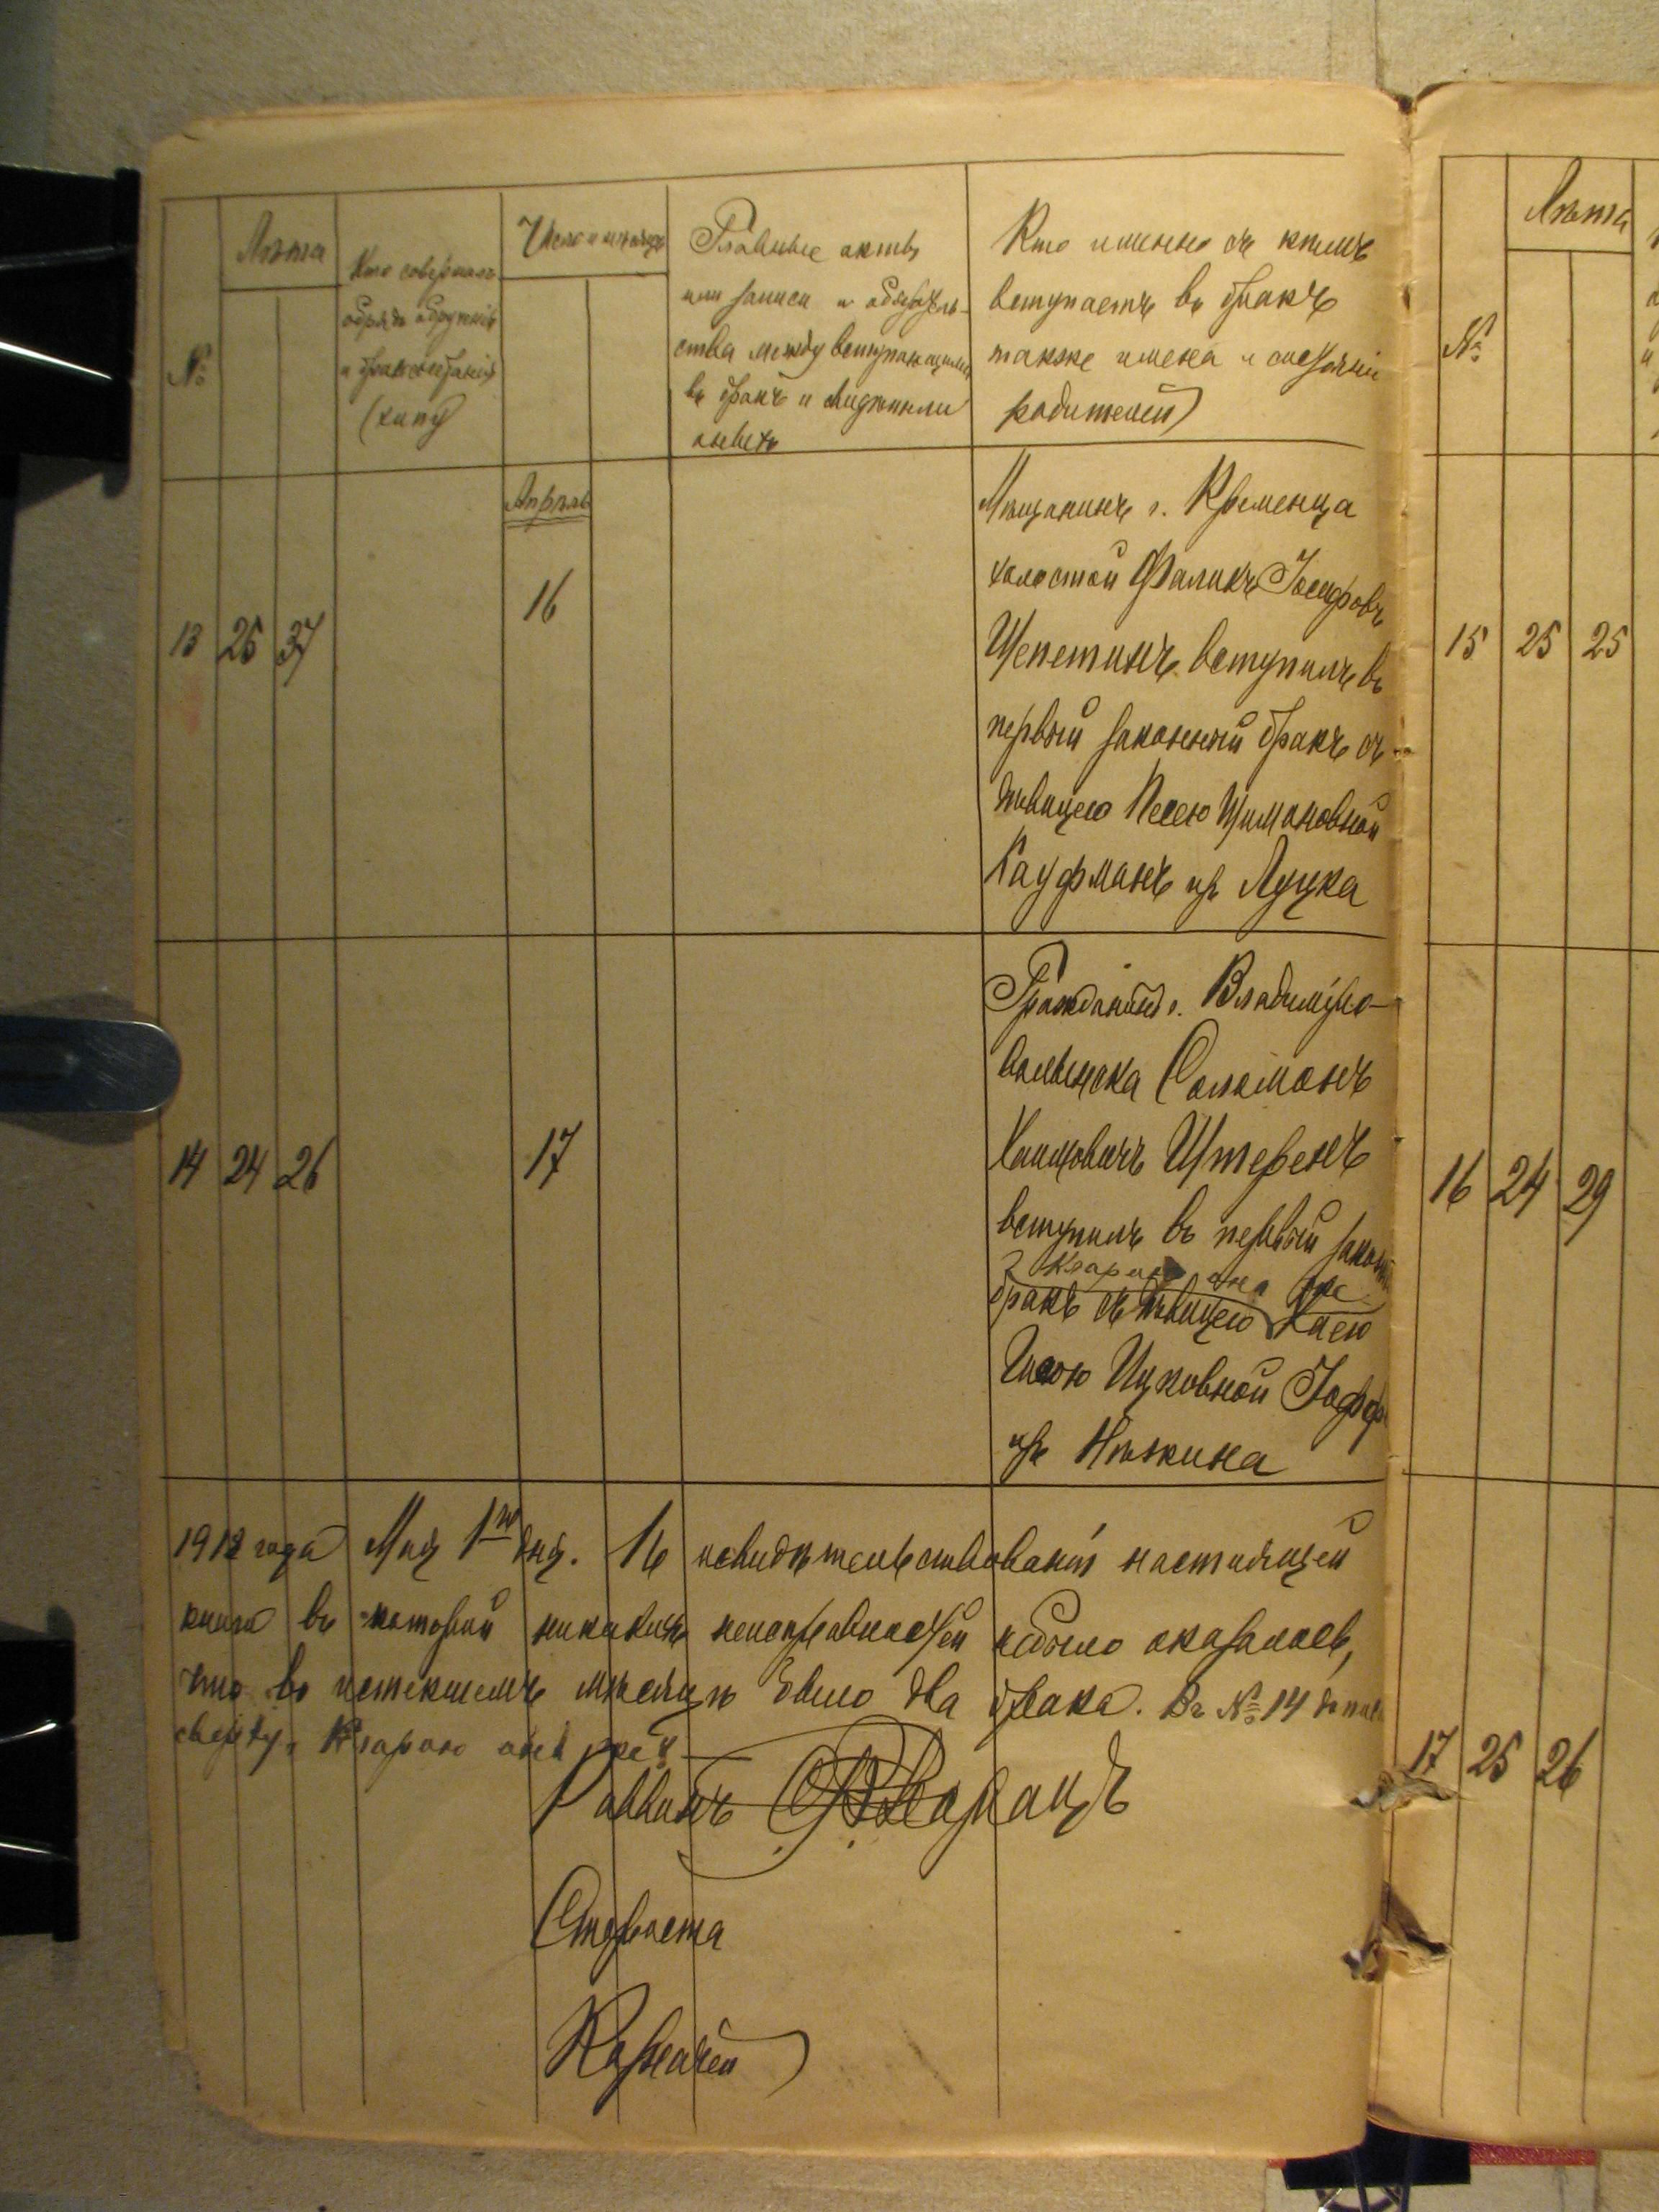 №
Лѣта
Кто совершалъ
обрядъ обрученія
и бракосочетанія
(хипу)
Число и мѣсяцъ
Главные акты
или записи и обязатель-
ства между вступающими
въ бракъ и свидѣтели
оныхъ
Кто именно съ кѣмъ
вступаетъ въ бракъ
также имена и состояніе
родителей)
Апрѣль
13 25 37
16
Мѣщанинъ г. Кременца
холостой Фаликъ Іосифовъ
Щепетинъ вступилъ въ
первый законный бракъ съ
дѣвицею Песею Шимановной
Кауфманъ изъ Луцка
14 24 26
17
Гражданинъ г. Владиміро-
волынска Соломонъ
Хаимовичъ Штеренъ
вступилъ въ первый законн
Кларою она же
бракъ съ дѣвицею Хаею
Ицковной Іофф
изъ Нѣжина
1918 года Мая 1го дня. По освидѣтельствованіи настоящей
книги въ которой никакихъ неисправностей небыло оказалось,
что во истекшемъ мѣсяцѣ было два брака. Въ № 14
сверху: Кларою она же
Раввинъ
Староста
Казначей
№
Лѣта
15 25 25
16 24 29
17 25 26